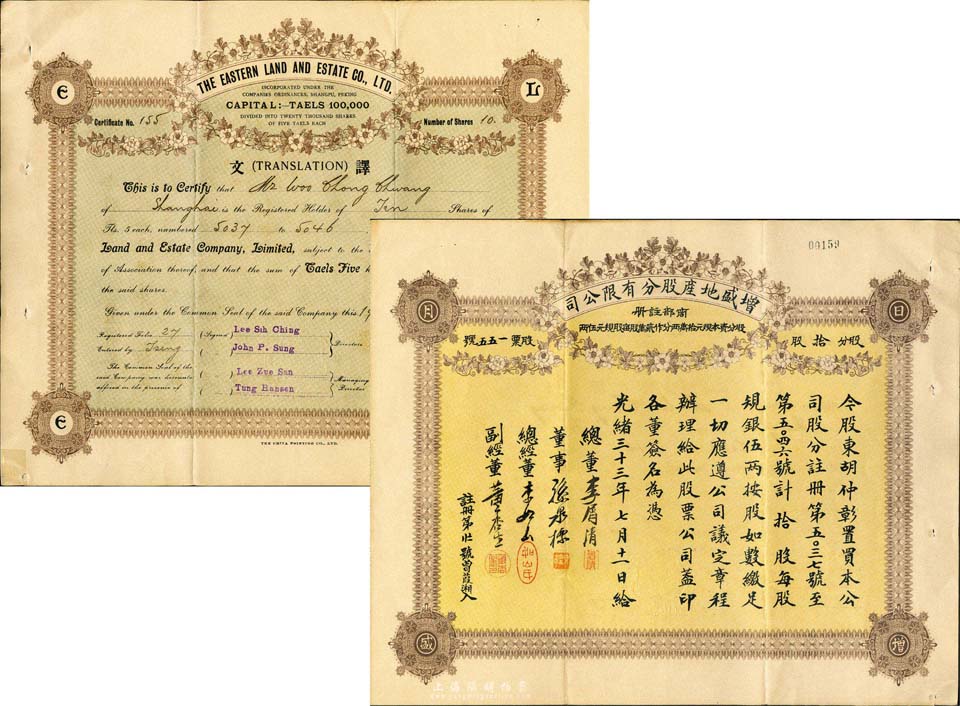 THE EASTERN LAND AND ESTATE CO., LTD.
INCORPORATED UNDER THE
COMPANIES ORDINANCES, SHANGPU, PEKING
CAPITAL:—TAELS 100,000
DIVIDED INTO TWENTY THOUSAND SHARES
OF FIVE TAELS EACH
E
L
Certificate No. 155
Number of Shares 10.
文 (TRANSLATION) 譯
This is to Certify that Mr Woo Chong Chwang
of Shanghai is the Registered Holder of Ten Shares of
Tls. 5 each, numbered 5037 to 5046
Land and Estate Company, Limited, subject to the
of Association thereof, and that the sum of Taels Five
the said shares.
Given under the Common Seal of the said Company this
Registered Folio 27
Entered by Tseng
(Signed)
Lee Suh Ching
John P. Sung
Directors
The Common Seal of the
said Company was hereunto
affixed in the presence of
Lee Zue San
Tung Hansen
Managing
Director
E
THE CHINA PRINTING CO., LTD.
00159
增盛地產股分有限公司
商部註册
股分資本規元拾萬兩分作貳萬股每股規元伍兩
日
月
股分拾股
股票一五五號
今股東胡仲彰置買本公
司股分註册第五〇三七號至
第五〇四六號計拾股每股
規銀伍兩按股如數繳足
一切應遵公司議定章程
辦理給此股票公司蓋印
各董簽名為憑
光緒三十三年七月十一日給
總董李屑清
董事孫
總經董李
副經董董杏生
註册第 號曾葭湖入
增
盛